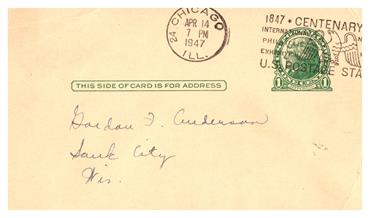 CHICAGO
24
APR 14
7 PM
1947
ILL.
1847 • CENTENARY
INTERNATIONAL
PHIL
EXH
U.S. POSTAGE STA
1 1
THIS SIDE OF CARD IS FOR ADDRESS
Gordon F. Anderson
Sauk City
Wis.